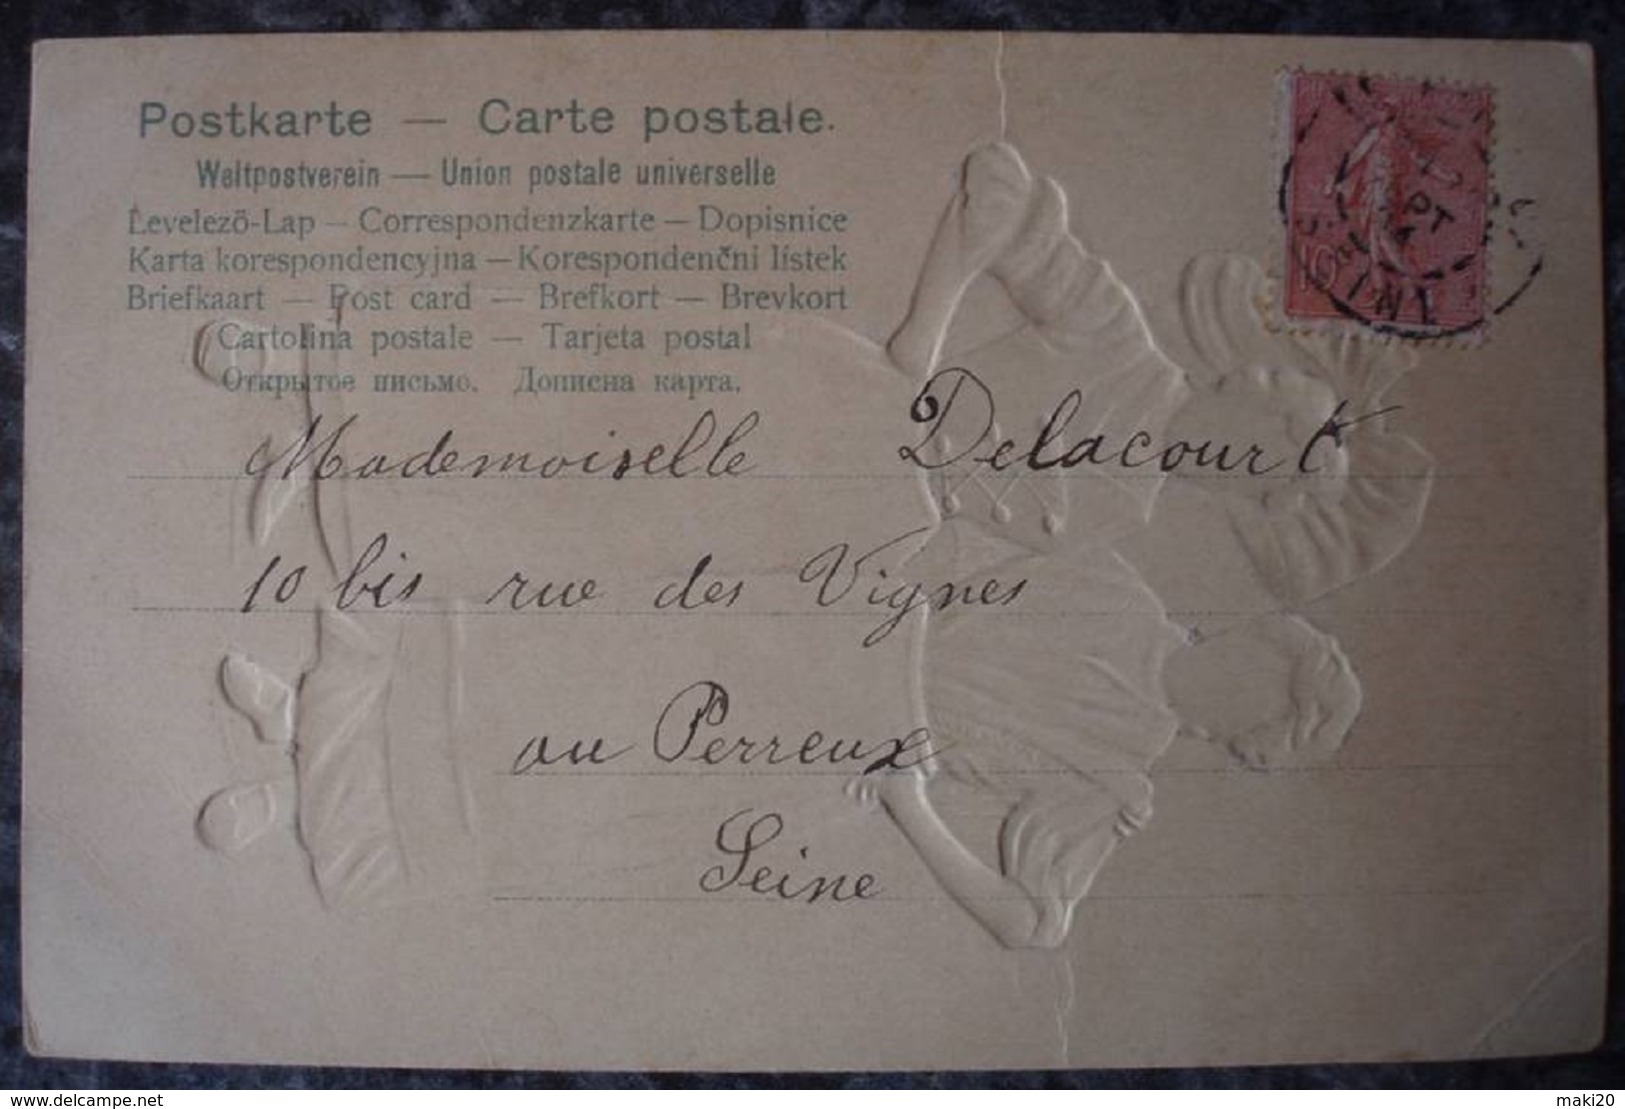 Postkarte — Carte postale.
Weltpostverein — Union postale universelle
Levelezö-Lap — Correspondenzkarte — Dopisnice
Karta korespondencyjna — Korespondenčni lístek
Briefkaart — Post card — Brefkort — Brevkort
Cartolina postale — Tarjeta postal
Открытое письмо. Дописна карта.
Mademoiselle Delacourt
10 bis rue des Vignes
au Perreux
Seine
www.delcampe.net
maki20